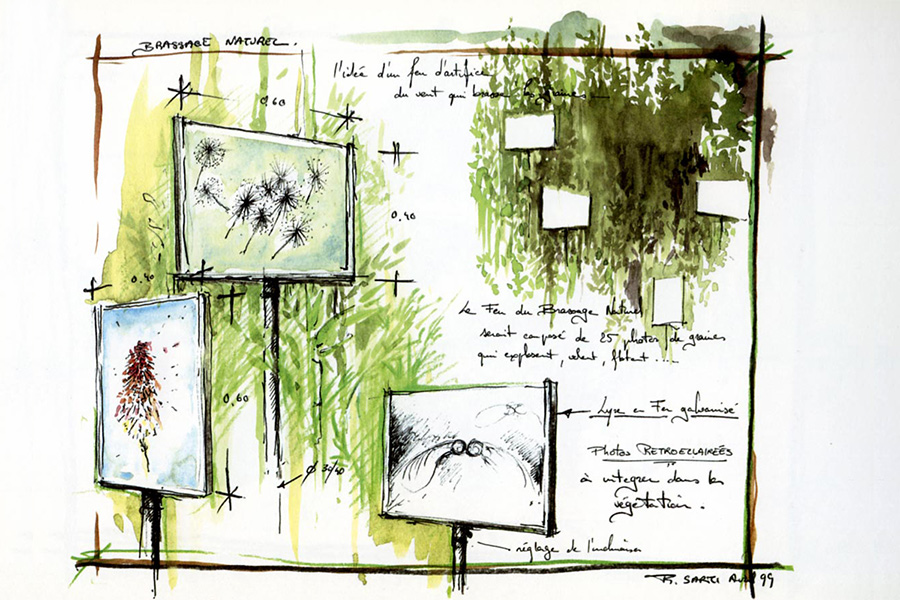 BRASSAGE NATUREL.
l'idée d'un feu d'artifice
du vent qui brasse les graines
0,60
0,40
0,40
0,60
Le Feu du Brassage Naturel
serait composé de 25 photos de graines
qui explosent, volent, flottent ...
Lyre en Fer galvanisé
Photos RETROECLAIREES
à intégrer dans la
végétation.
Ø 30/40
réglage de l'inclinaison
R. SARTI Avril 99